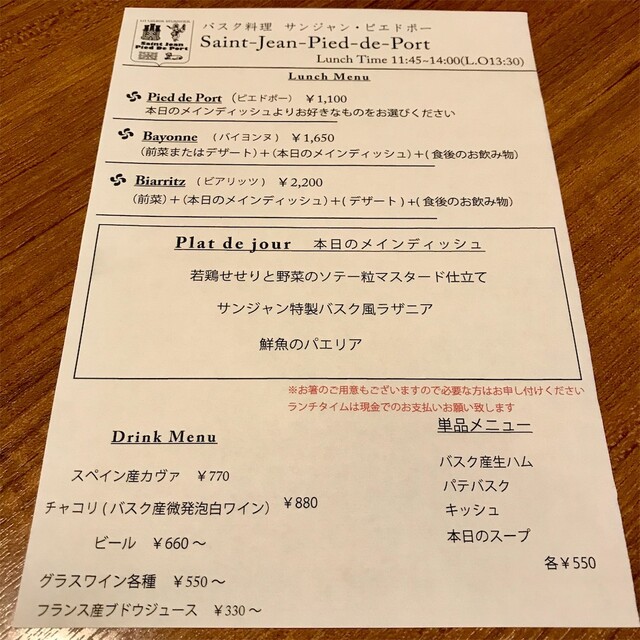 バスク料理 サンジャン・ピエドポー
Saint Jean
Pied De Port
Saint-Jean-Pied-de-Port
Lunch Time 11:45~14:00(L.O13:30)
Lunch Menu
Pied de Port (ピエドポー) ￥1,100
本日のメインディッシュよりお好きなものをお選びください
Bayonne (バイヨンヌ) ￥1,650
(前菜またはデザート)+(本日のメインディッシュ)+(食後のお飲み物)
Biarritz (ビアリッツ) ￥2,200
(前菜)+(本日のメインディッシュ)+(デザート)+(食後のお飲み物)
Plat de jour 本日のメインディッシュ
若鶏せせりと野菜のソテー粒マスタード仕立て
サンジャン特製バスク風ラザニア
鮮魚のパエリア
※お箸のご用意もございますので必要な方はお申し付けください
ランチタイムは現金でのお支払いお願い致します
Drink Menu
スペイン産カヴァ ￥770
チャコリ(バスク産微発泡白ワイン) ￥880
ビール ￥660～
グラスワイン各種 ￥550～
フランス産ブドウジュース ￥330～
単品メニュー
バスク産生ハム
パテバスク
キッシュ
本日のスープ
各￥550